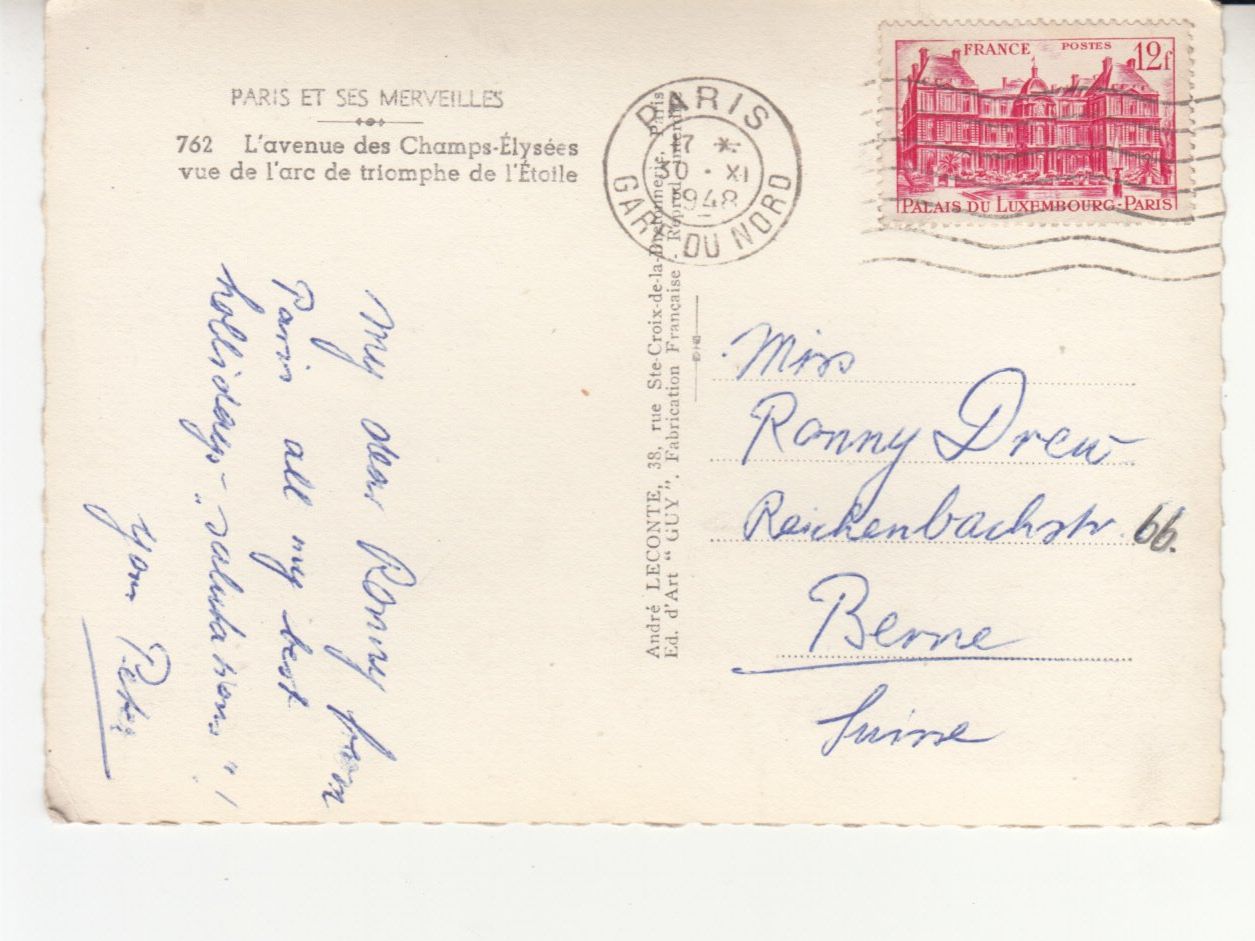 PARIS ET SES MERVEILLES
762 L'avenue des Champs-Élysées
vue de l'arc de triomphe de l'Étoile
PARIS
17
30 · XI
1948
GARE DU NORD
FRANCE POSTES 12f
PALAIS DU LUXEMBOURG-PARIS
André LECONTE, 38, rue Ste-Croix-de-la-Bretonnerie, Paris
Ed. d'Art "GUY". Fabrication Française - Reprod. interdite
My dear Ronny from
Paris all my best
hollidays-„salutations" !
your Peter
Miss
Ronny Drew
Reichenbachstr. 66.
Berne
Suisse